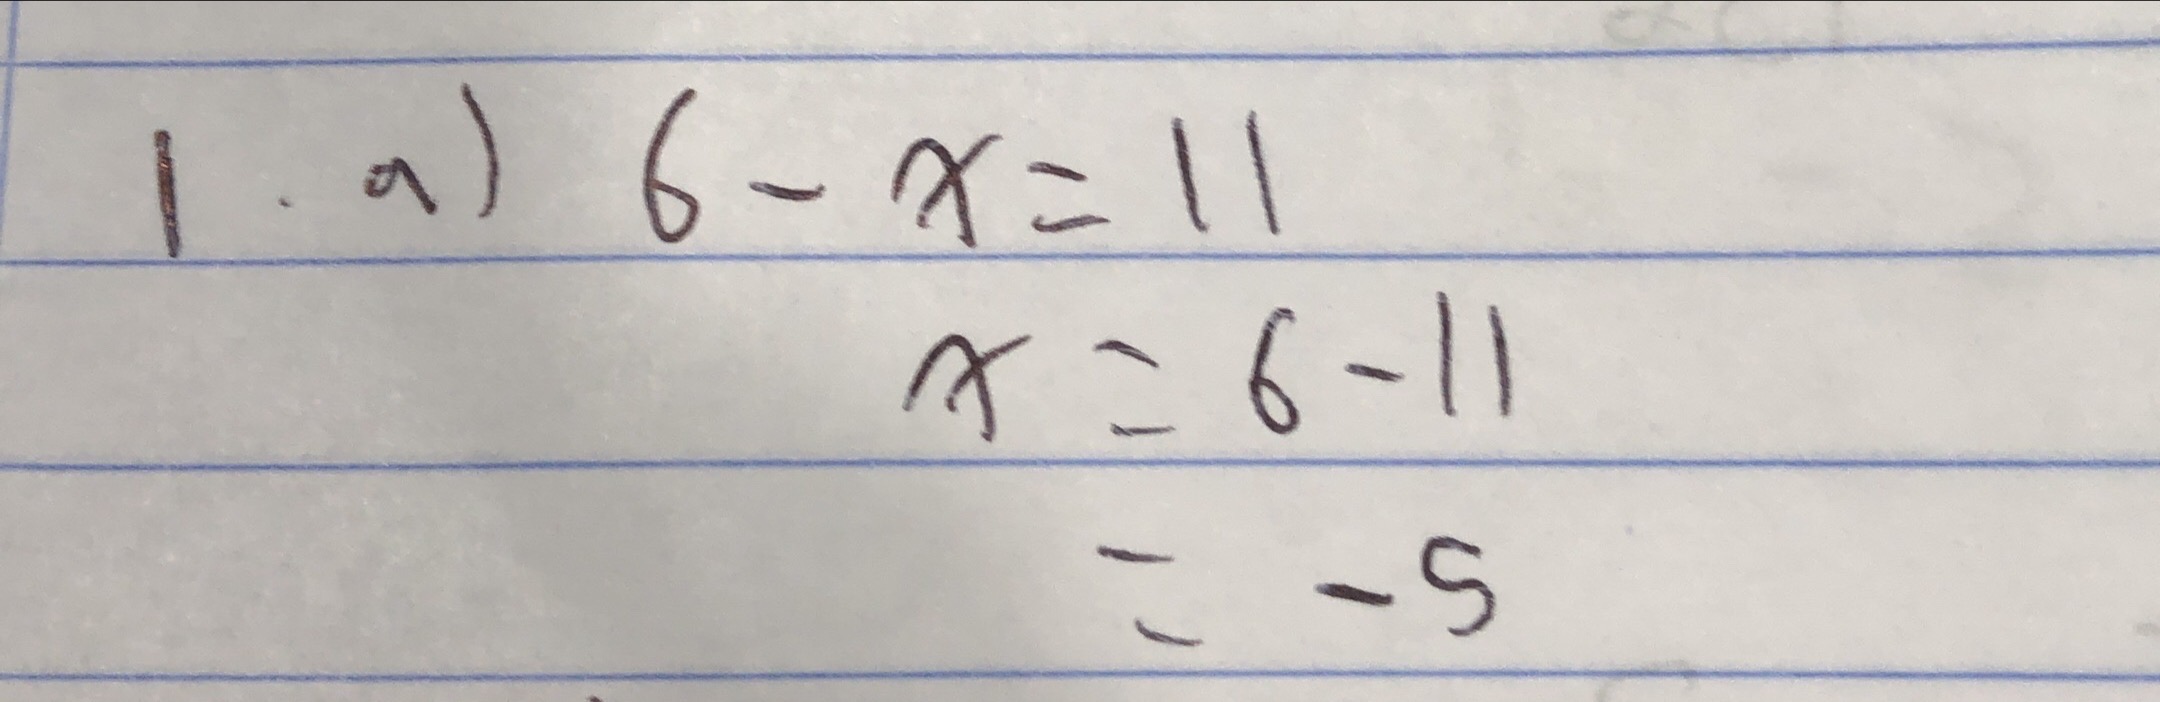 1. a) 6 - x = 11
x = 6 - 11
= -5